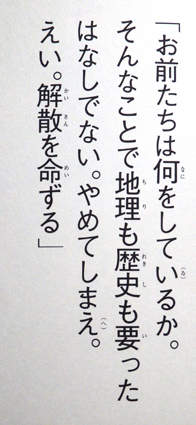 「お前たちは何をしているか。
そんなことで地理も歴史も要った
はなしでない。やめてしまえ。
えい。解散を命ずる」